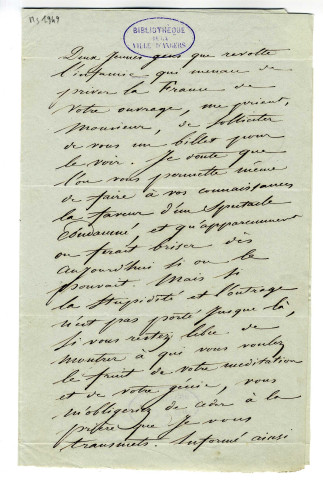 Ms 1949
BIBLIOTHÈQUE
DE LA
VILLE D'ANGERS
Deux jeunes gens que revolte
l'infamie qui menace de
priver la France de
votre ouvrage, me prient,
Monsieur, de solliciter
de vous un billet pour
le voir. Je doute que
l'on vous permette même
de faire à vos connaissances
la faveur d'un spectacle
condamné, et qu'apparemment
on ferait briser dès
aujourd'hui si on le
pouvait. Mais si
la stupidité et l'outrage
n'est pas porté jusque là,
si vous restez libre de
montrer à qui vous voulez
le fruit de votre méditation
et de votre génie, vous
m'obligerez de céder à la
prière que je vous
transmets. Informé ainsi